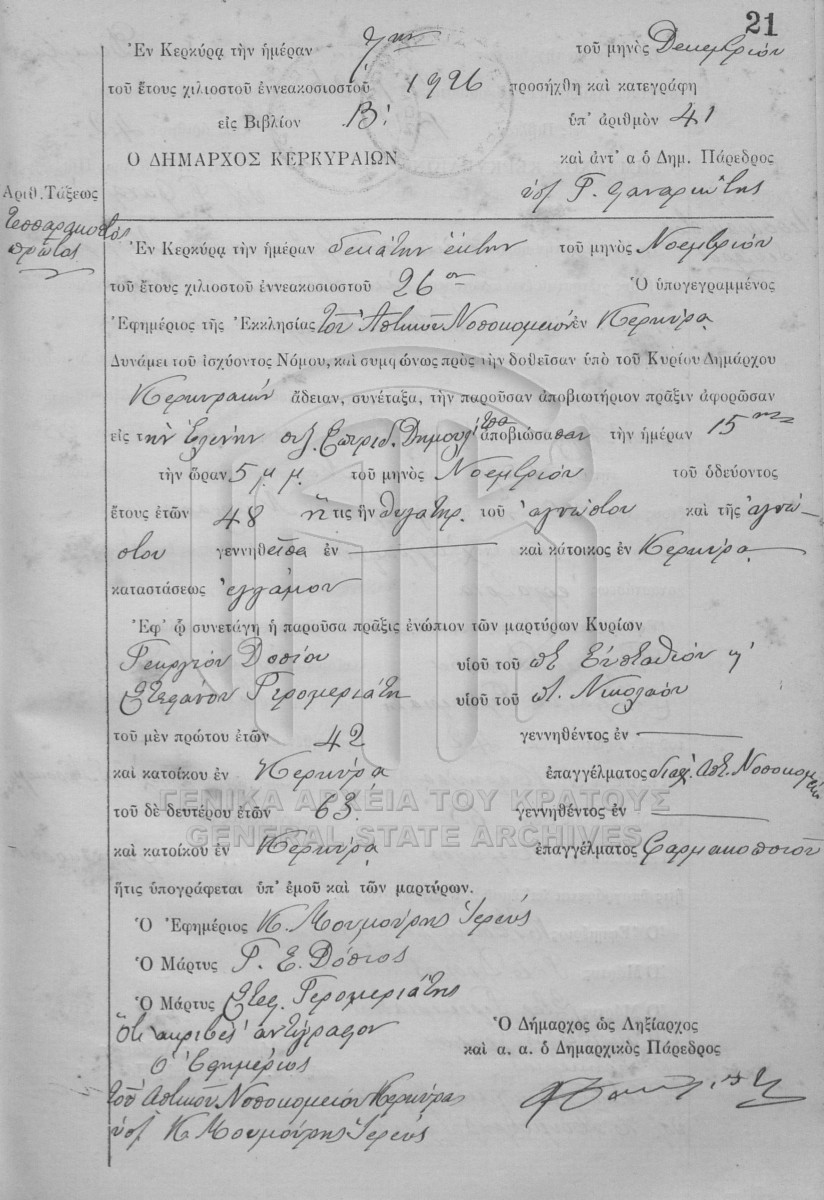 21
Ἐν Κερκύρᾳ τὴν ἡμέραν 7ην τοῦ μηνὸς Δεκεμβρίου
τοῦ ἔτους χιλιοστοῦ ἐννεακοσιοστοῦ 1926 προσήχθη καὶ κατεγράφη
εἰς Βιβλίον Β! ὑπ' ἀριθμὸν 41
Ο ΔΗΜΑΡΧΟΣ ΚΕΡΚΥΡΑΙΩΝ καὶ ἀντ' α ὁ Δημ. Πάρεδρος
Ἀριθ. Τάξεως
τεσσαρακοστὸς
πρῶτος
Ἐν Κερκύρᾳ τὴν ἡμέραν δεκάτην ἕκτην τοῦ μηνὸς Νοεμβρίου
τοῦ ἔτους χιλιοστοῦ ἐννεακοσιοστοῦ 26ου Ὁ ὑπογεγραμμένος
Ἐφημέριος τῆς Ἐκκλησίας τοῦ Ἀστικοῦ Νοσοκομείου ἐν Κερκύρᾳ
Δυνάμει τοῦ ἰσχύοντος Νόμου, καὶ συμφώνως πρὸς τὴν δοθεῖσαν ὑπὸ τοῦ Κυρίου Δημάρχου
Κερκυραίων ἄδειαν, συνέταξα, τὴν παροῦσαν ἀποβιωτήριον πρᾶξιν ἀφορῶσαν
εἰς τὴν Ἑλένην συζ. Σπυρίδ. ἀποβιώσασαν τὴν ἡμέραν 15ην
τὴν ὥραν 5 μ.μ. τοῦ μηνὸς Νοεμβρίου τοῦ ὁδεύοντος
ἔτους ἐτῶν 48 ἥτις ἦν θυγάτηρ τοῦ ἀγνώστου καὶ τῆς ἀγνώ-
στου γεννηθεῖσα ἐν — καὶ κάτοικος ἐν Κερκύρᾳ
καταστάσεως ἐγγάμου
Ἐφ' ᾧ συνετάγη ἡ παροῦσα πρᾶξις ἐνώπιον τῶν μαρτύρων Κυρίων
Γεωργίου Δοσίου υἱοῦ τοῦ ποτ. Εὐσταθίου
Στεφάνου Γερομεριάτη υἱοῦ τοῦ π. Νικολάου
τοῦ μὲν πρώτου ἐτῶν 42 γεννηθέντος ἐν —
καὶ κατοίκου ἐν Κερκύρᾳ ἐπαγγέλματος διαχ. Ἀστ. Νοσοκομείου
ΓΕΝΙΚΑ ΑΡΧΕΙΑ ΤΟΥ ΚΡΑΤΟΥΣ
τοῦ δὲ δευτέρου ἐτῶν 63 γεννηθέντος ἐν —
GENERAL STATE ARCHIVES
καὶ κατοίκου ἐν Κερκύρᾳ ἐπαγγέλματος Φαρμακοποιοῦ
ἥτις ὑπογράφεται ὑπ' ἐμοῦ καὶ τῶν μαρτύρων.
Ὁ Ἐφημέριος Κ. Μουμούρης Ἱερεύς
Ὁ Μάρτυς Γ. Ε. Δόσιος
Ὁ Μάρτυς Στεφ. Γερομεριάτης
Ὅτι ἀκριβὲς ἀντίγραφον
Ὁ Ἐφημέριος
τοῦ Ἀστικοῦ Νοσοκομείου Κερκύρας
ὑπ. Κ. Μουμούρης Ἱερεύς
Ὁ Δήμαρχος ὡς Ληξίαρχος
καὶ α. α. ὁ Δημαρχικὸς Πάρεδρος